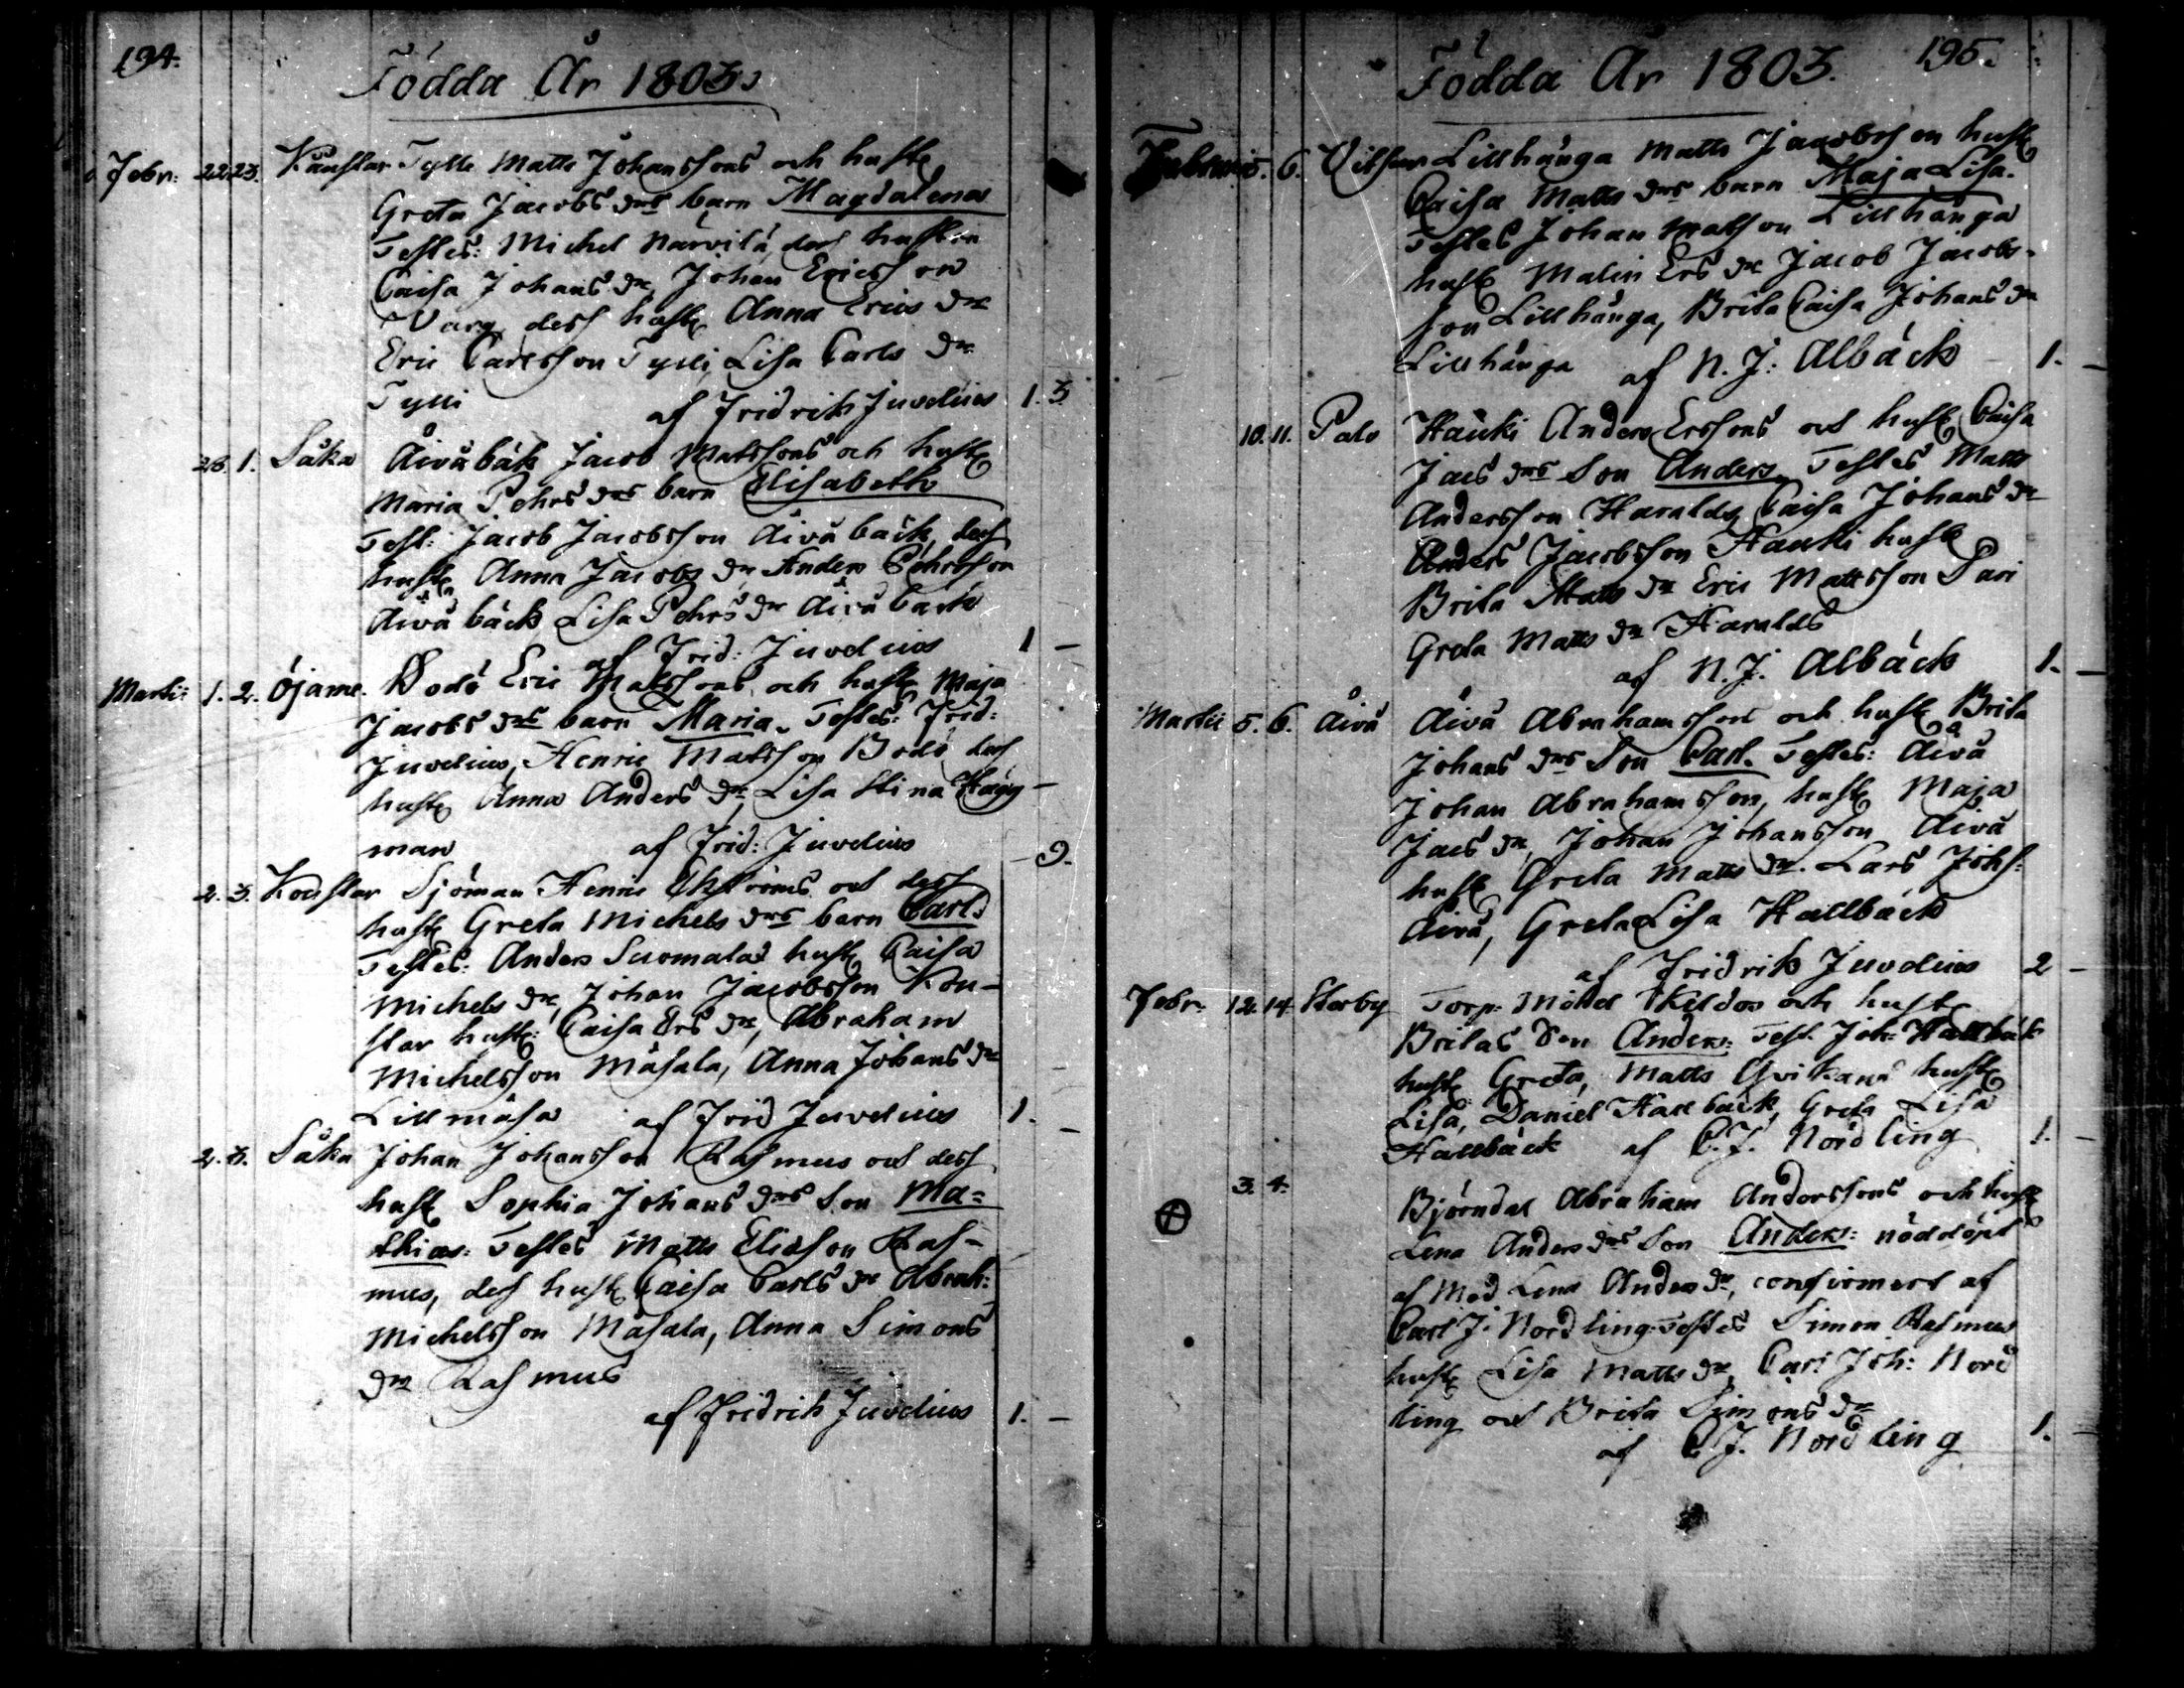 194.
Födda År 1803.
Febr: 22. 23. Kaustar Tylli Matts Johanssons och hust:
Greta Jacobs drs barn Magdalena
Testes: Michel Närvilä, dess hustru
Caisa Johans dr, Johan Ericsson
Warg dess hust: Anna Erics dr
Eric Carlsson Tylli, Lisa Carls dr
Tylli af Fridrich Juvelius 1. 3
28. 1. Såka Åivåbäck Jacob Mattssons och hust:
Maria Pehrs drs barn Elisabeth
Test: Jacob Jacobsson Åivåbäck, dess
hust: Anna Jacobs dr Anders Pehrsson
Åivåbäck, Lisa Pehrs dr Åivåbäck
af Frid: Juvelius 1 –
Martii 1. 2. Öjame. Bodö Eric Matssons och hust: Maja
Jacobs drs barn Maria. Testes: Frid:
Juvelius, Henric Matsson Bodö, dess
hust: Anna Anders dr, Lisa Stina Hägg-
man af Frid: Juvelius – 9.
2. 3. Koustar Sjöman Henric Ekströms och dess
hust: Greta Michels drs barn Carl.
Testes: Anders Suomalas hust: Caisa
Michels dr, Johan Jacobsson Kou-
star hust: Caisa Ers dr, Abraham
Michelsson Måsala, Anna Johans dr
Lillmåsa af Frid Juvelius 1. –
2. 3. Såka Johan Johansson Rasmus och dess
hust: Sophia Johans drs Son Ma=
thias: Testes Matts Elidson Ras-
mus, dess hust: Caisa Carls dr Abrah:
Michelsson Måsala, Anna Simons
dr Rasmus
af Fridrich Juvelius 1. –
Födda År 1803. 195.
Februarii 5. 6. Vitsar Lillhånga Matts Jacobsson hust:
Caisa Matts drs barn Maja Lisa.
Testes Johan Matson Lillhånga
hust: Malin Ers dr Jacob Jacobs-
son Lillhånga, Brita Caisa Johans dr
Lillhånga af N. J. Albäck 1. –
10. 11. Palo Hauki Anders Erssons och hust: Caisa
Jacs drs Son Anders Testes Matts
Andersson Haralds, Caisa Johans dr
Anders Jacobsson Hauki hust:
Brita Matts dr Eric Mattsson Pari
Greta Matts dr Haralds
af N. J. Albäck 1. –
Martii 5. 6. Åivå Åivå Abrahamsson och hust: Brita
Johans drs Son Carl. Testes: Åivå
Johan Abrahamsson, hust: Maja
Jacs dr, Johan Johansson Åivå
hust: Greta Matts dr. Lars Johs:
Åivå, Greta Lisa Hallbäck
af Fridrik Juvelius 2 –
Febr. 12. 14. Storby Torp: Michel Skildos och hust:
Britas Son Anders: Test. Joh: Hallbäck
hust: Greta, Matts hust:
Lisa, Daniel Hallbäck, Greta Lisa
Hallbäck af C. J. Nordling 1. –
3. 4. Björndal Abraham Anderssons och hust:
Lena Anders drs Son Anders: nöddöpt
af Mod Lena Anders dr, confirmert af
Carl J. Nordling. Testes Simon Rasmus
hust: Lisa Matts dr, Carl Joh: Nord
ling och Brita Simons dr
af C. J. Nordling 1. –